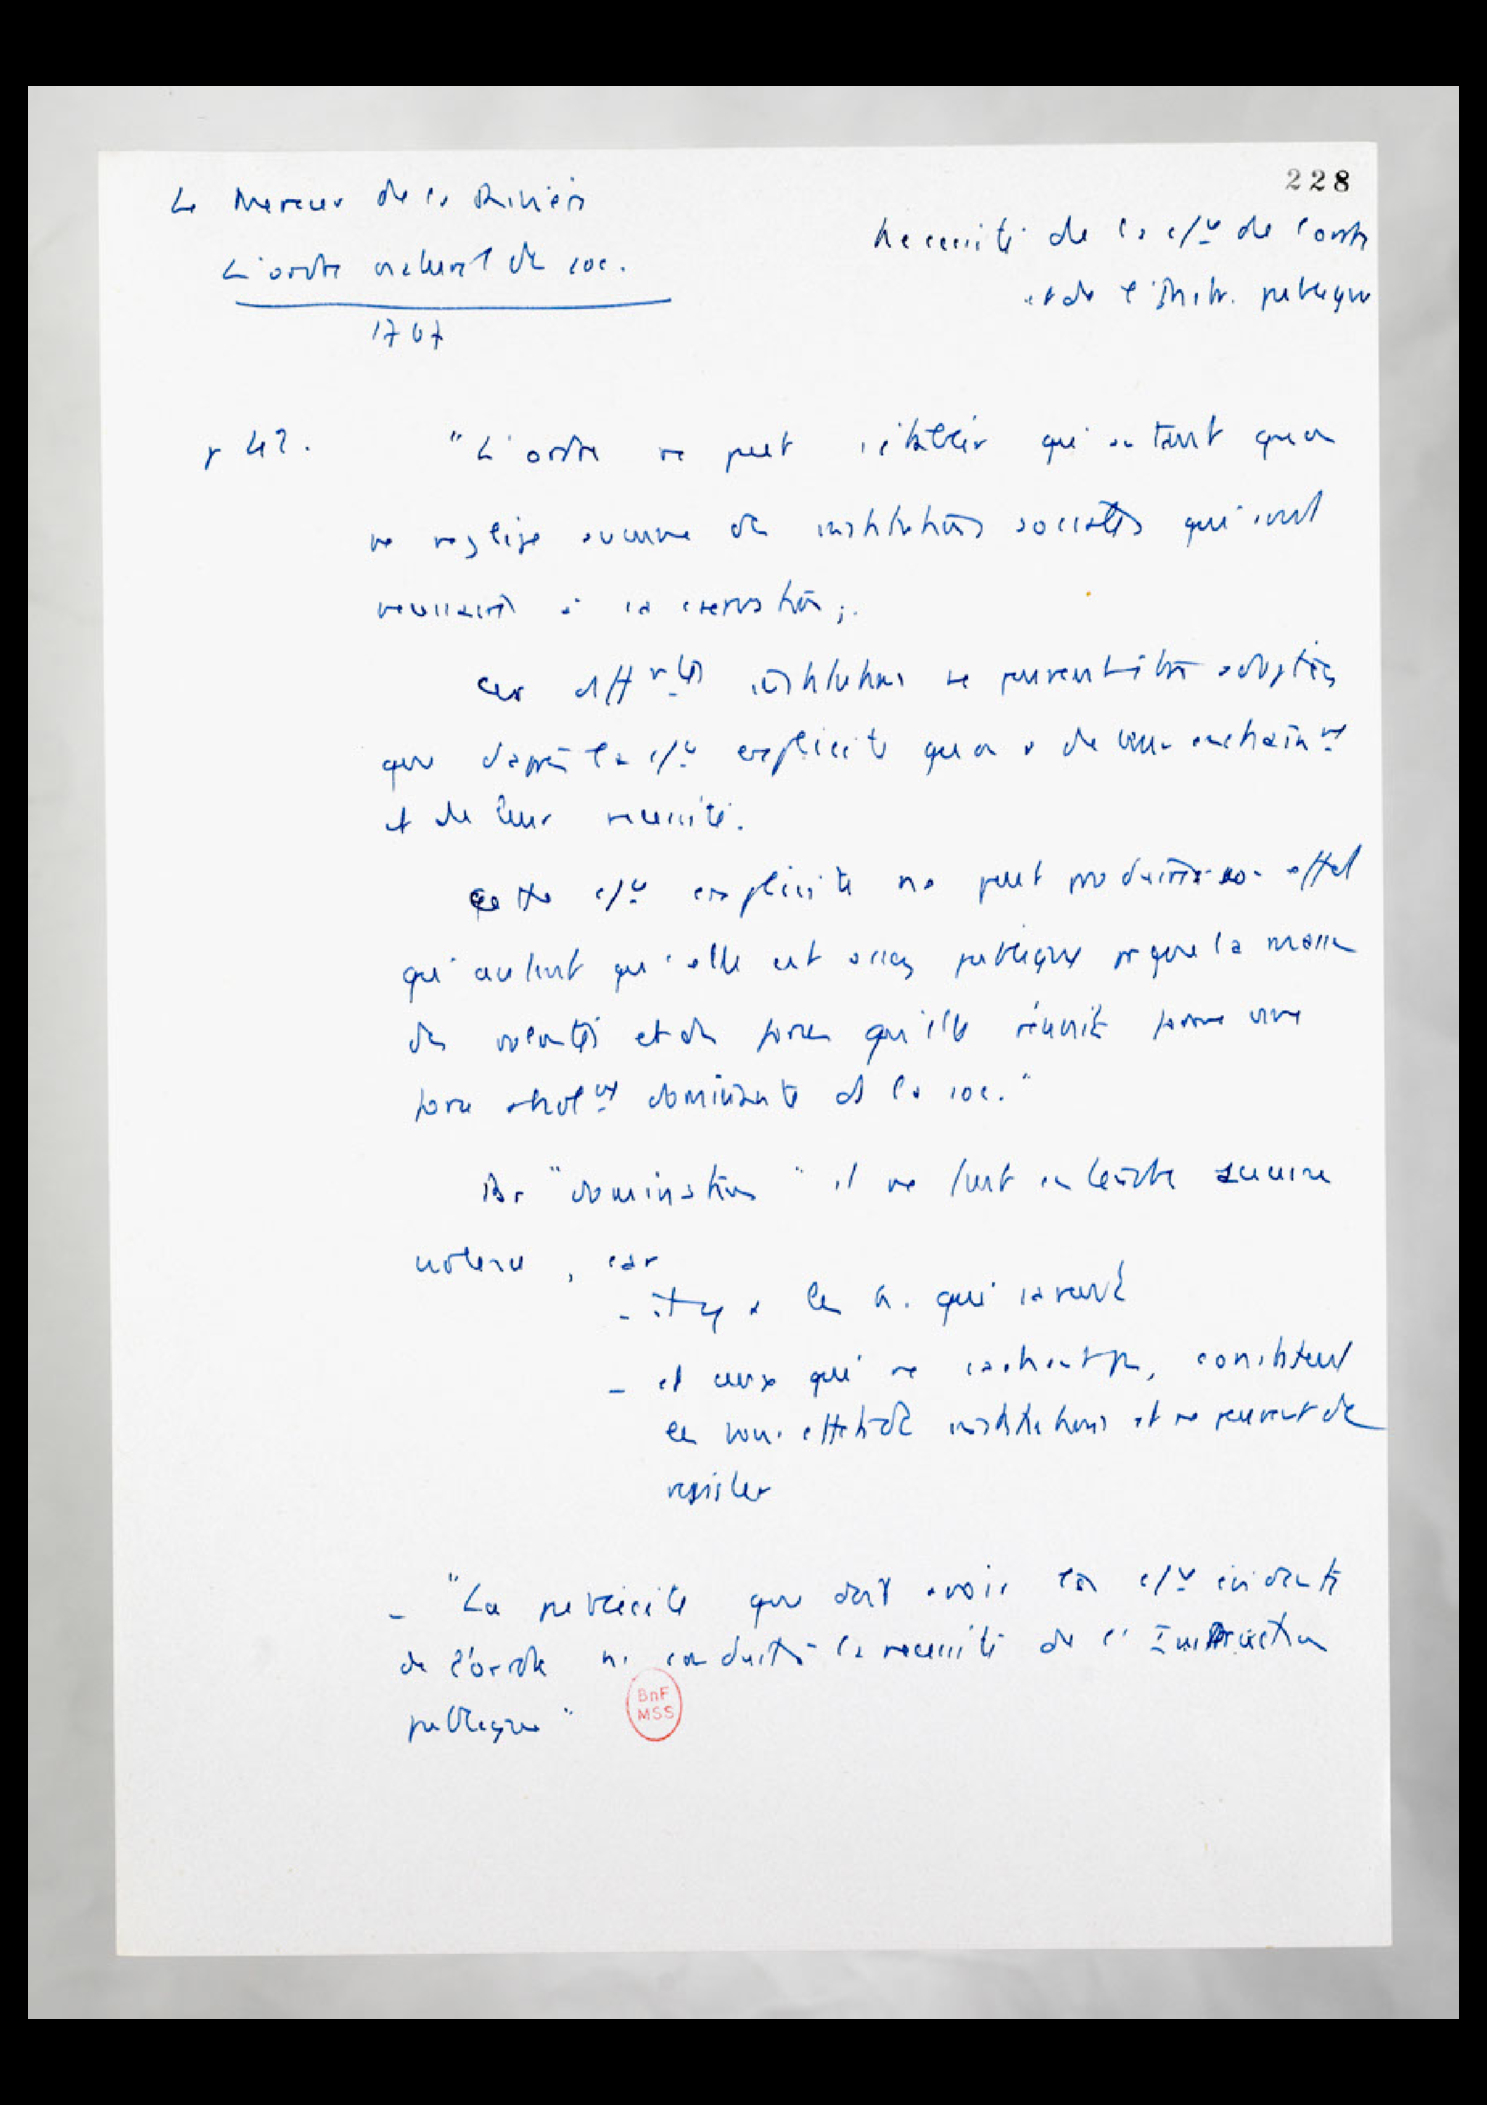 228
Le Mercier de la Rivière
L'ordre naturel des soc.
1767
Nécessité de la c/ce de l'ordre
et de l'Instr. publique
p 42. "L'ordre ne peut s'établir qu'autant que on
ne néglige aucune des institutions sociales qui sont
nécessaires à sa conservation ;.
Ces différentes institutions ne peuvent être adoptées
que d'après la c/ce explicite que on a de leur enchaînmt
et de leur nécessité.
Cette c/ce explicite ne peut produire son effet
qu'autant qu'elle est assez publique pr que la masse
des volontés et des forces qu'elle réunit forme une
force absolmt dominante ds la soc."
Par "domination" il ne faut entendre aucune
, car
- il y a les h. qui savent
- et ceux qui ne sachent pas,
les institutions et ne peuvent
résister
- "La publicité que doit avoir la c/ce évidente
de l'ordre ns conduit à la nécessité de l'Instruction
publique"
BnF
MSS